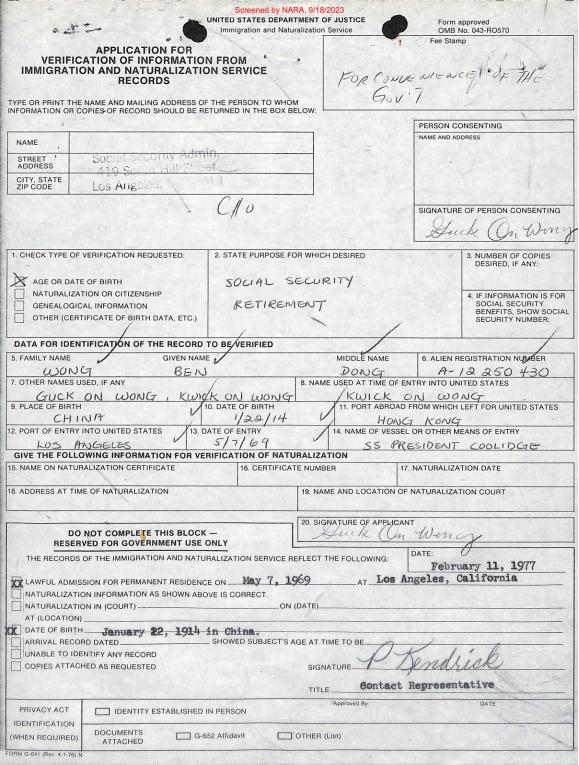 Screened by NARA, 9/18/2023
UNITED STATES DEPARTMENT OF JUSTICE
Immigration and Naturalization Service
Form approved
OMB No. 043-RO570
APPLICATION FOR
VERIFICATION OF INFORMATION FROM
IMMIGRATION AND NATURALIZATION SERVICE
RECORDS
Fee Stamp
FOR CONVENIENCE OF THE
GOV'T
TYPE OR PRINT THE NAME AND MAILING ADDRESS OF THE PERSON TO WHOM
INFORMATION OR COPIES OF RECORD SHOULD BE RETURNED IN THE BOX BELOW:
PERSON CONSENTING
NAME AND ADDRESS
NAME
STREET ADDRESS Social Security Admin.
CITY, STATE ZIP CODE Los Angeles,
SIGNATURE OF PERSON CONSENTING
Guck On Wong
1. CHECK TYPE OF VERIFICATION REQUESTED:
X AGE OR DATE OF BIRTH
NATURALIZATION OR CITIZENSHIP
GENEALOGICAL INFORMATION
OTHER (CERTIFICATE OF BIRTH DATA, ETC.)
2. STATE PURPOSE FOR WHICH DESIRED
SOCIAL SECURITY
RETIREMENT
3. NUMBER OF COPIES DESIRED, IF ANY:
4. IF INFORMATION IS FOR SOCIAL SECURITY BENEFITS, SHOW SOCIAL SECURITY NUMBER:
DATA FOR IDENTIFICATION OF THE RECORD TO BE VERIFIED
5. FAMILY NAME GIVEN NAME MIDDLE NAME 6. ALIEN REGISTRATION NUMBER
WONG BEN DONG A-12 250 430
7. OTHER NAMES USED, IF ANY 8. NAME USED AT TIME OF ENTRY INTO UNITED STATES
GUCK ON WONG, KWICK ON WONG KWICK ON WONG
9. PLACE OF BIRTH 10. DATE OF BIRTH 11. PORT ABROAD FROM WHICH LEFT FOR UNITED STATES
CHINA 1/22/14 HONG KONG
12. PORT OF ENTRY INTO UNITED STATES 13. DATE OF ENTRY 14. NAME OF VESSEL OR OTHER MEANS OF ENTRY
LOS ANGELES 5/7/69 SS PRESIDENT COOLIDGE
GIVE THE FOLLOWING INFORMATION FOR VERIFICATION OF NATURALIZATION
15. NAME ON NATURALIZATION CERTIFICATE 16. CERTIFICATE NUMBER 17. NATURALIZATION DATE
18. ADDRESS AT TIME OF NATURALIZATION 19. NAME AND LOCATION OF NATURALIZATION COURT
20. SIGNATURE OF APPLICANT
Guck On Wong
DO NOT COMPLETE THIS BLOCK —
RESERVED FOR GOVERNMENT USE ONLY
THE RECORDS OF THE IMMIGRATION AND NATURALIZATION SERVICE REFLECT THE FOLLOWING:
DATE:
February 11, 1977
XX LAWFUL ADMISSION FOR PERMANENT RESIDENCE ON May 7, 1969 AT Los Angeles, California
NATURALIZATION INFORMATION AS SHOWN ABOVE IS CORRECT.
NATURALIZATION IN (COURT) ON (DATE)
AT (LOCATION)
XX DATE OF BIRTH January 22, 1914 in China.
ARRIVAL RECORD DATED SHOWED SUBJECT'S AGE AT TIME TO BE
UNABLE TO IDENTIFY ANY RECORD
COPIES ATTACHED AS REQUESTED
SIGNATURE P Kendrick
TITLE Contact Representative
Approved By: DATE
PRIVACY ACT
IDENTIFICATION
(WHEN REQUIRED)
IDENTITY ESTABLISHED IN PERSON
DOCUMENTS ATTACHED G-652 Affidavit OTHER (List)
FORM G-641 (Rev. 4-1-76) N